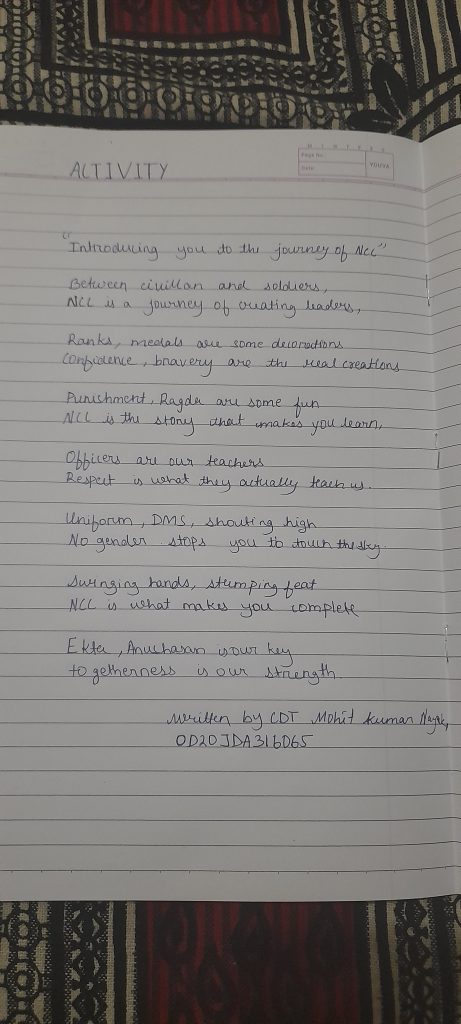 MINTRAC
Page No.
Date
YOUVA
ACTIVITY
"Introducing you to the journey of NCC"
Between civillan and soldiers,
NCC is a journey of creating leaders,
Ranks, medals are some decorations
Confidence, bravery are the real creations
Punishment, Ragda are some fun
NCC is the story that makes you learn,
Officers are our teachers
Respect is what they actually teach us.
Uniform, DMS, shouting high
No gender stops you to touch the sky.
Swinging hands, stumping feat
NCC is what makes you complete
Ekta, Anushasan is our key
togethernness is our strength.
written by CDT Mohit kumar Nayak,
OD20JDA316065